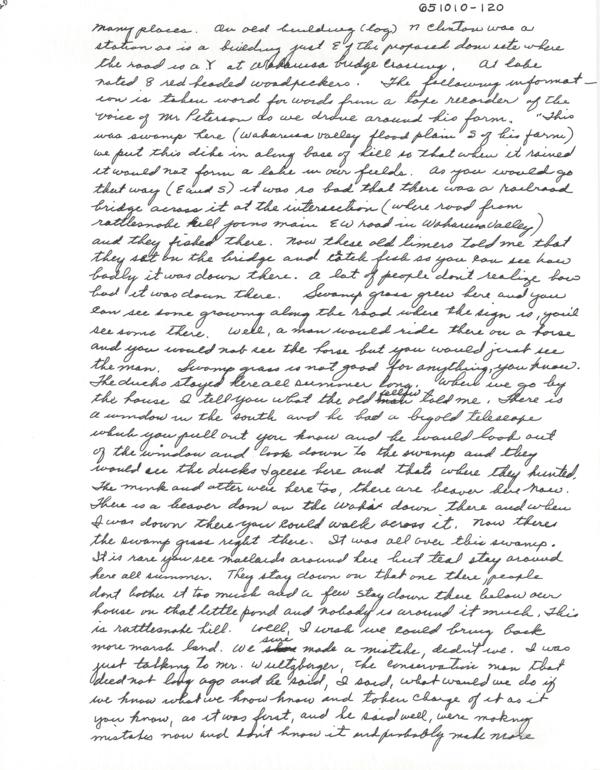 651010-120
many places. An old building (log) N Clinton was a
station as is a building just E of the proposed dam site where
the road is a Y at Wakarusa bridge crossing. At lake
noted 8 red headed woodpeckers. The following informat-
ion is taken word for words from a tape recorder of the
voice of Mr Peterson as we drove around his farm. "This
was swamp here (Wakarusa valley flood plain S of his farm)
we put this dike in along base of hill so that when it rained
it would not form a lake in our fields. As you would go
that way (E and S) it was so bad that there was a railroad
bridge across it at the intersection (where road from
rattlesnake hill joins main EW road in Wakarusa Valley)
and they fished there. Now these old timers told me that
they set on the bridge and catch fish so you can see how
badly it was down there. A lot of people don't realize how
bad it was down there. Swamp grass grew here and you
can see some growing along the road where the sign is, you'll
see some there. Well, a man would ride there on a horse
and you would not see the horse but you would just see
the man. Swamp grass is not good for anything, you know.
The ducks stayed here all summer long. When we go by
the house I tell you what the old fellow told me. There is
a window in the south and he had a big old telescope
which you pull out you know and he would look out
of the window and look down to the swamp and they
would see the ducks & geese here and thats where they hunted.
The mink and otter were here too, there are beaver here now.
There is a beaver dam on the Waka down there and when
I was down there you could walk across it. Now there
the swamp grass right there. It was all over this swamp.
It is rare you see mallards around here but teal stay around
here all summer. They stay down on that one there, people
dont bother it too much and a few stay down there below our
house on that little pond and nobody is around it much. This
is rattlesnake hill. Well, I wish we could bring back
more marsh land. We sure made a mistake, didn't we. I was
just talking to Mr. Wultzberger, the conservation man that
died not long ago and he said, I said, what would we do if
we know what we know know and taken charge of it as it
you know, as it was first, and he said well, were making
mistakes now and don't know it and probably make more